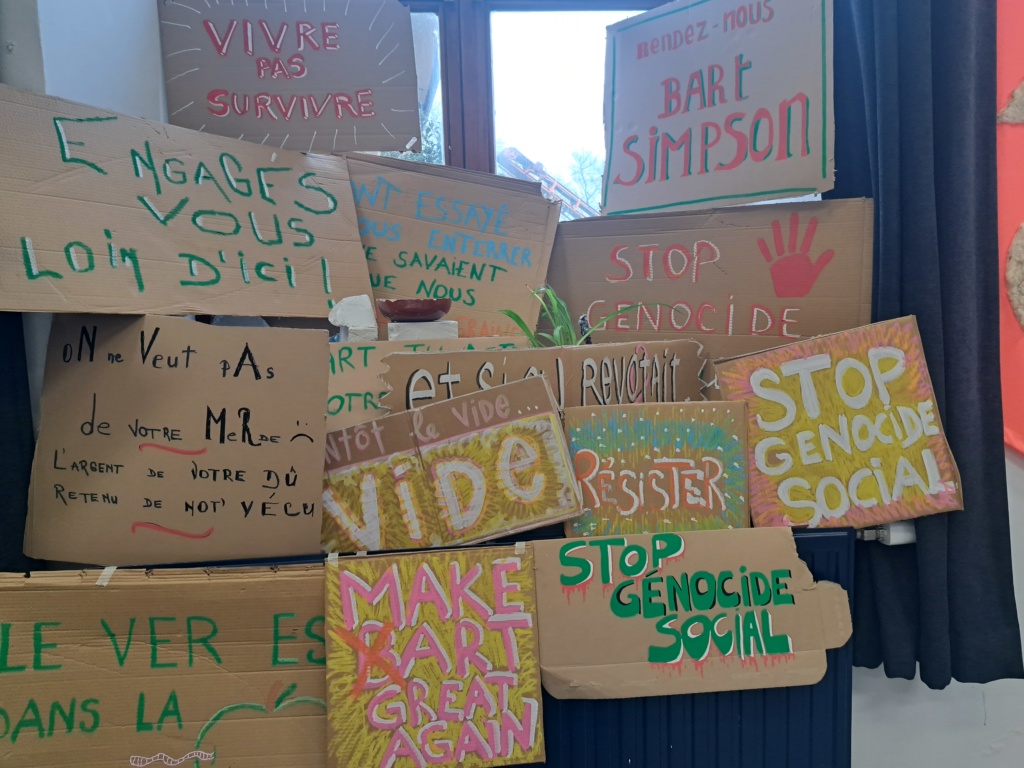 VIVRE
PAS
SURVIVRE
RENDEZ-NOUS
BART
SIMPSON
ENGAGES
VOUS
LOIN D'ICI !
NT ESSAYÉ
OUS ENTERRER
E SAVAIENT
UE NOUS
STOP
GENOCIDE
ON NE VEUT PAS
de VOTRE MeRDE :(
L'ARGENT DE VOTRE DÛ
RETENU DE NOT' VÉCU
ART
OTRE
et si on REVOTAIT
ntôt le vide...
VIDE
RÉSISTER
STOP
GENOCIDE
SOCIAL
LE VER ES
DANS LA
MAKE
BART
GREAT
AGAIN
STOP
GÉNOCIDE
SOCIAL